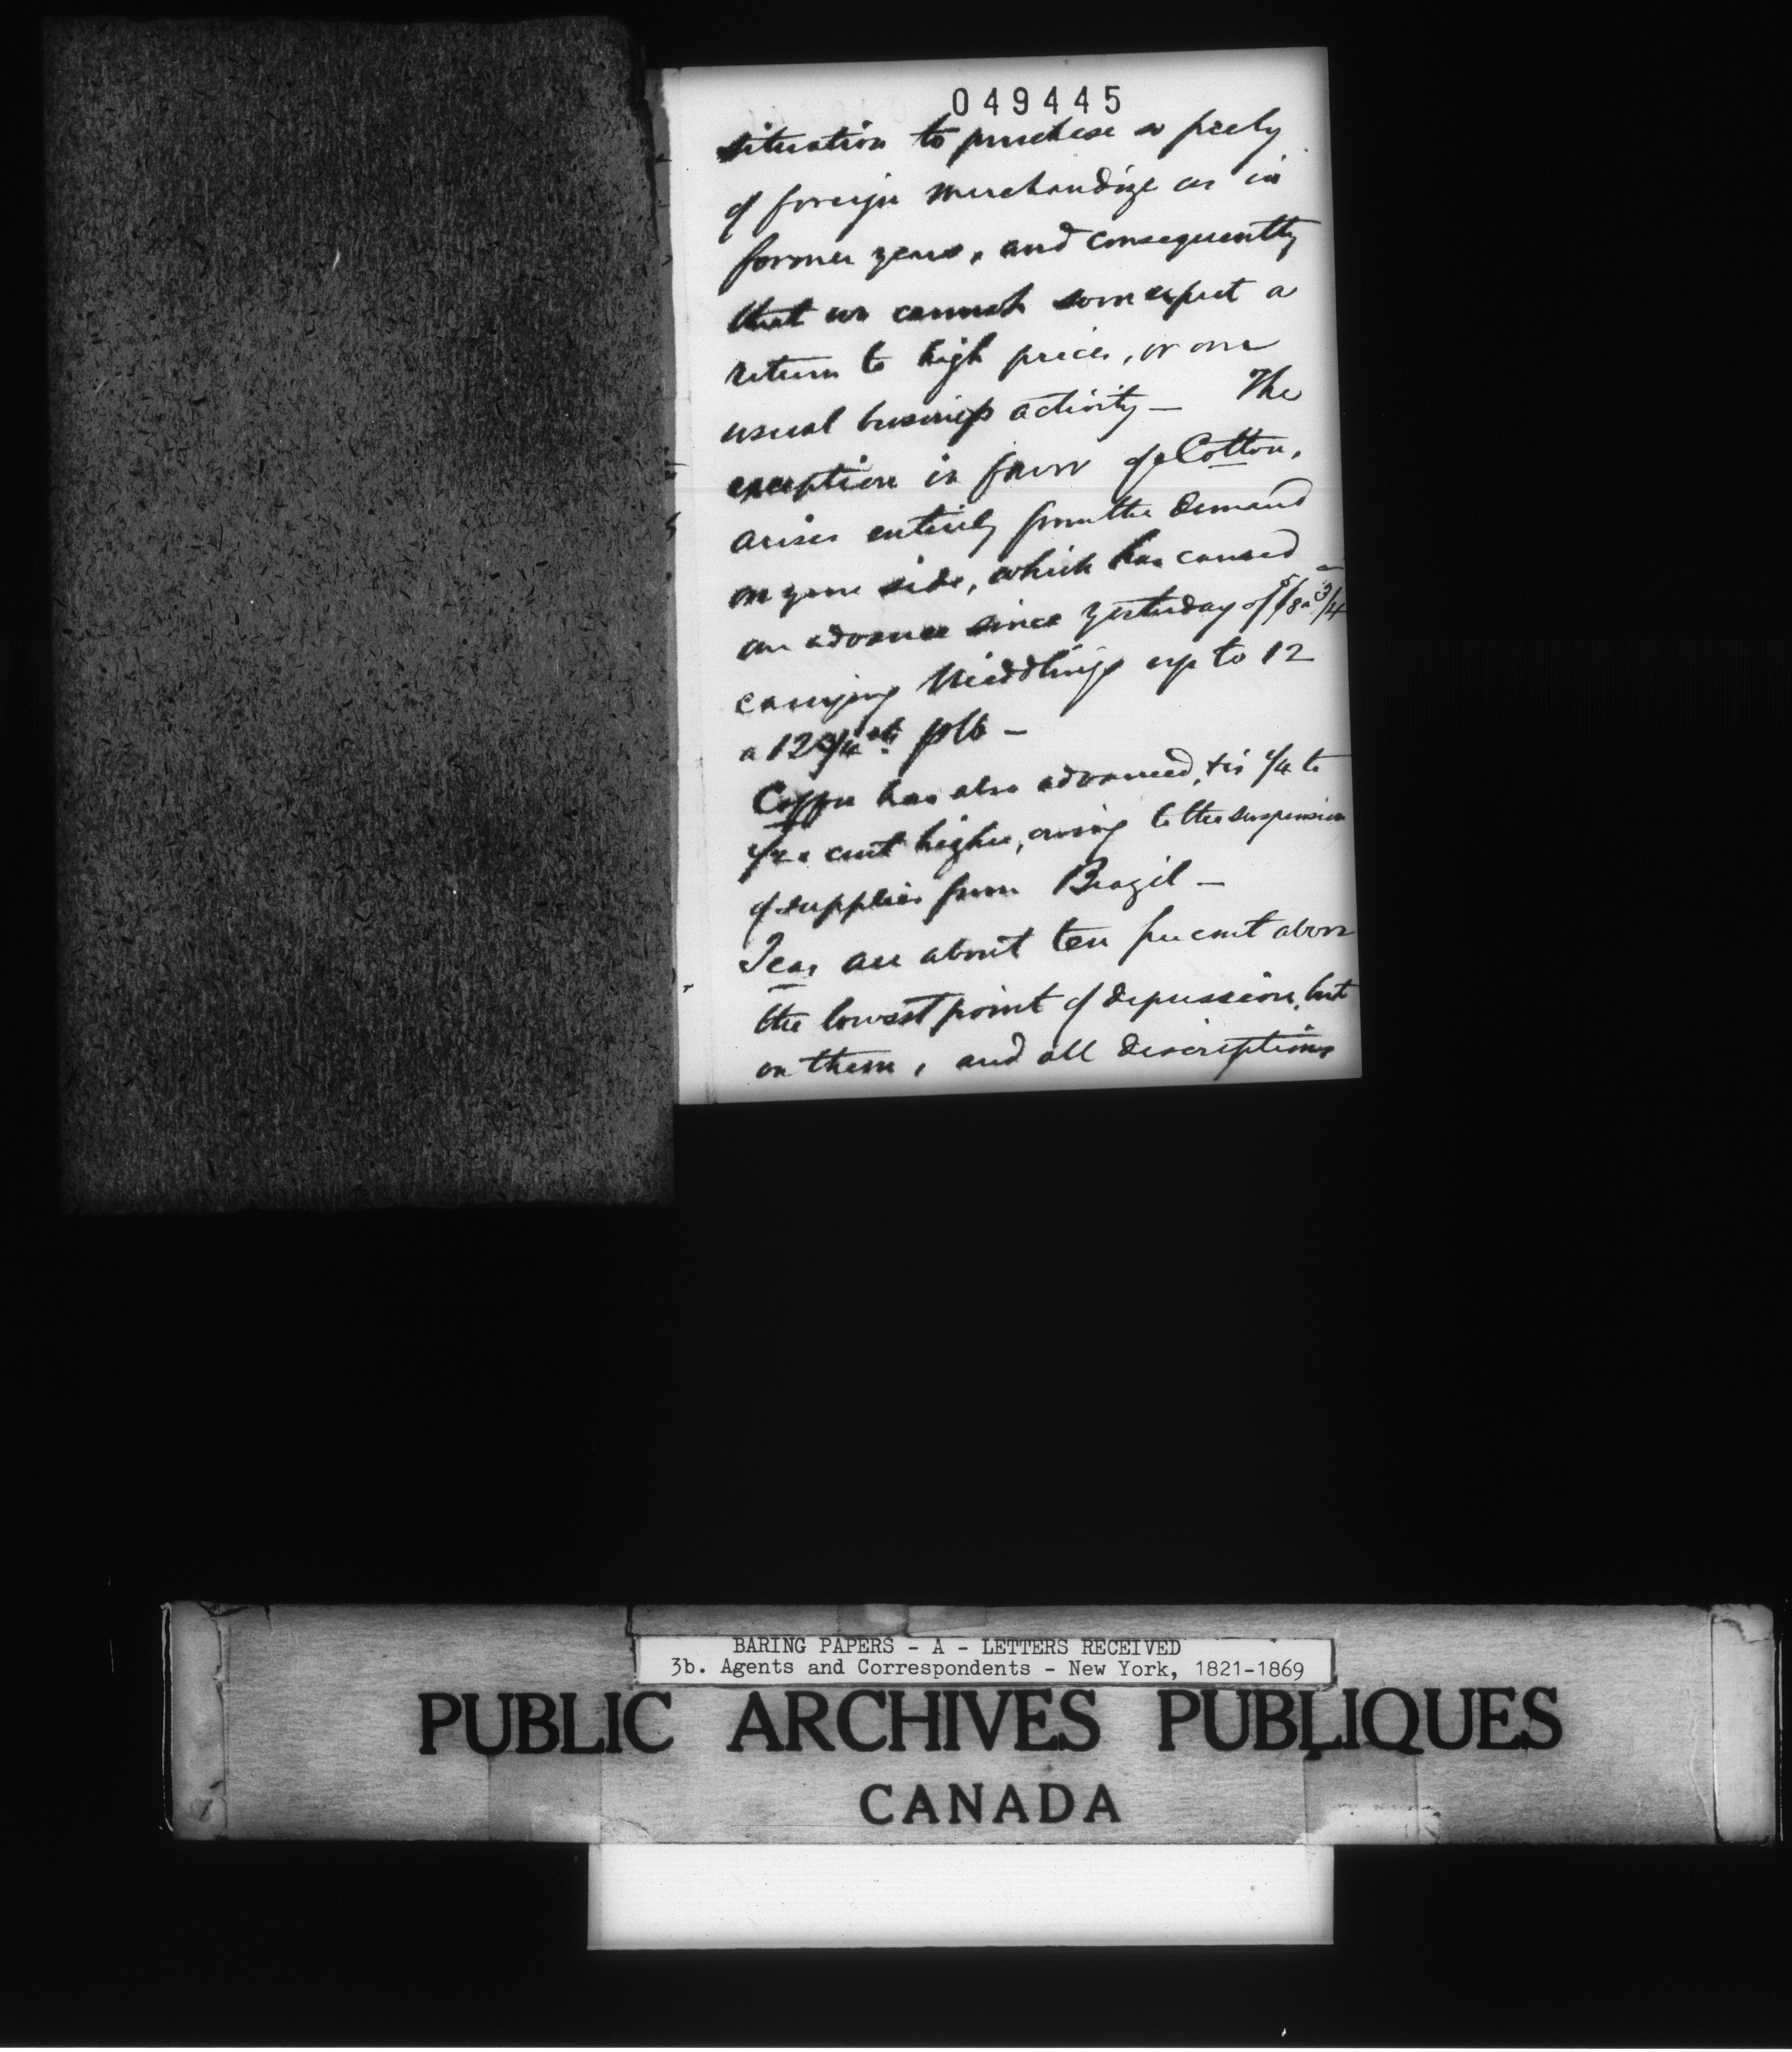 049445
situation to purchase so freely
of foreign merchandize as in
former years, and consequently
that we cannot soon expect a
return to high prices, or our
usual business activity — The
exception in favor of Cotton,
arises entirely from the demand
on your side, which has caused
an advance since yesterday of 5/8 a 3/4
carrying Middlings up to 12
a 12 1/4 cts p lb —
Coffee has also advanced, & is 1/4 to
1/2 a cent higher, owing to the suspension
of supplies from Brazil —
Teas are about ten per cent above
the lowest point of depression, but
on them, and all descriptions
BARING PAPERS - A - LETTERS RECEIVED
3b. Agents and Correspondents - New York, 1821-1869
PUBLIC ARCHIVES PUBLIQUES
CANADA